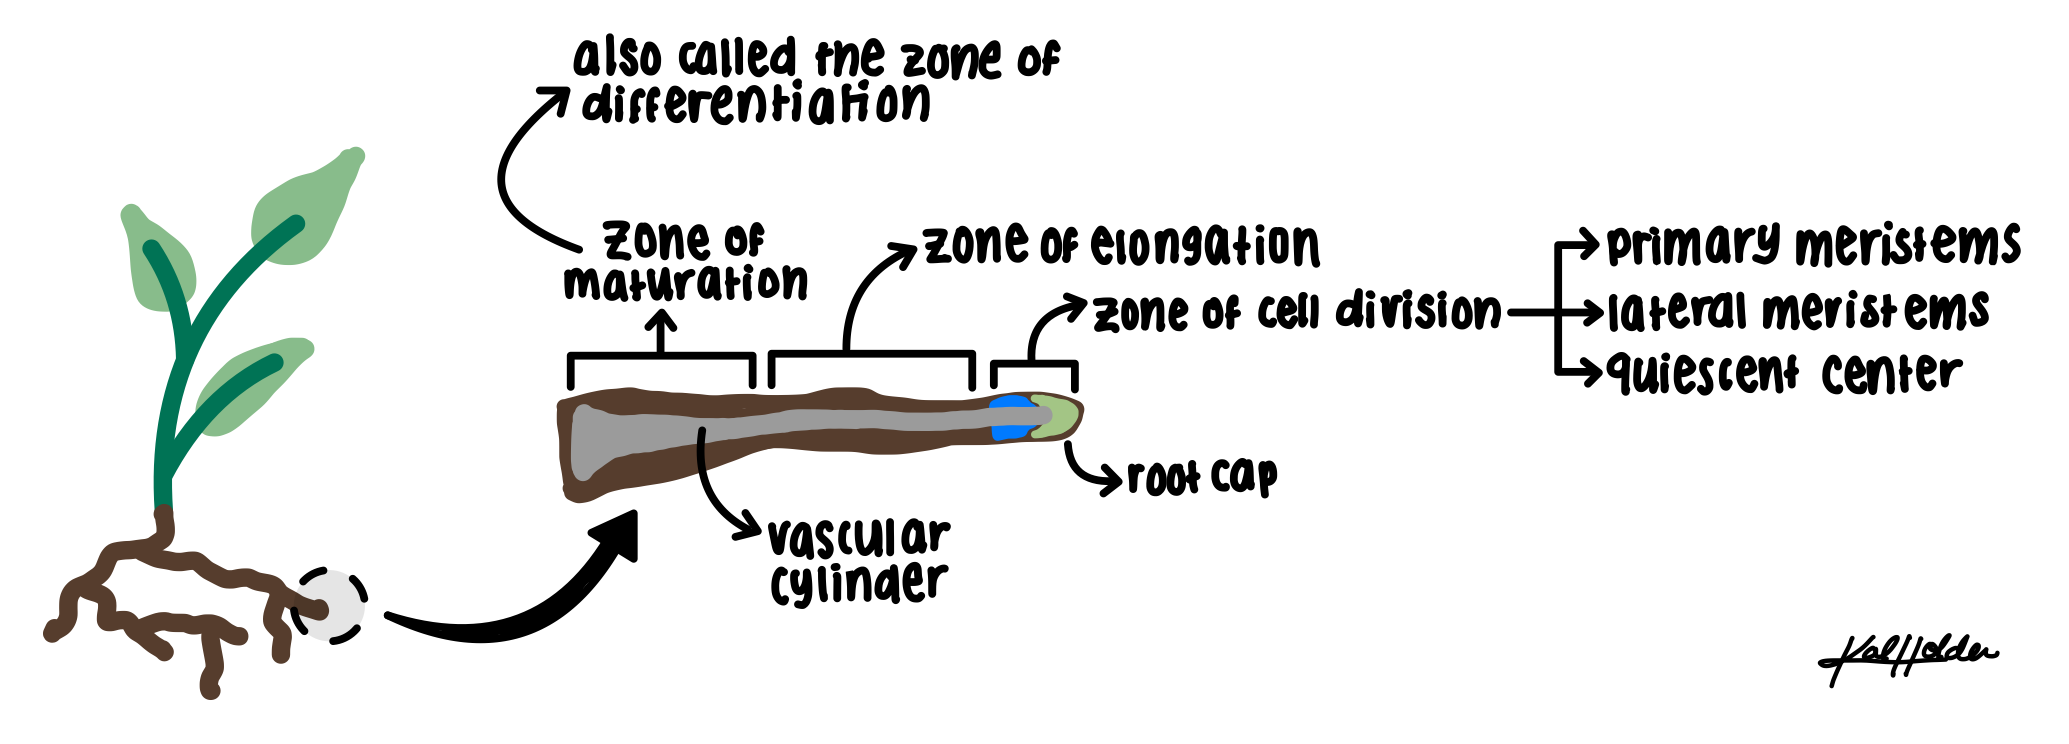 also called the zone of
differentiation
zone of
maturation
zone of elongation
zone of cell division
primary meristems
lateral meristems
quiescent center
root cap
vascular
cylinder
Kal Holder